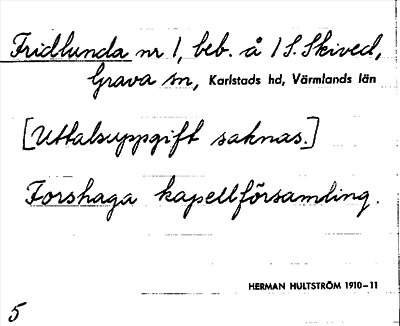 Fridlunda nr 1, beb. å 1 S. Skived,
Grava sn, Karlstads hd, Värmlands län
[Uttalsuppgift saknas.]
Forshaga kapellförsamling.
HERMAN HULTSTRÖM 1910-11
5